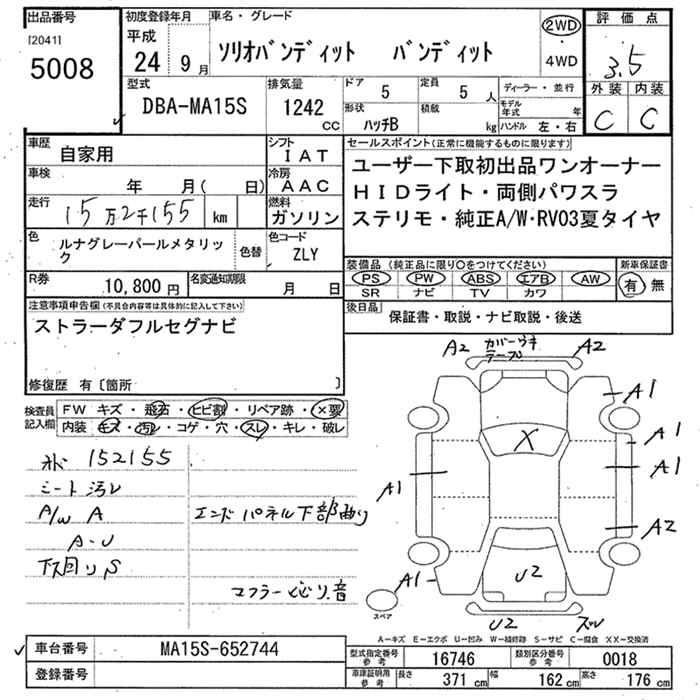 出品番号
[2041]
5008
初度登録年月
平成
24 9月
車名・グレード
ソリオバンディット バンディット
2WD
・
4WD
評価点
3.5
外装 内装
C C
型式
DBA-MA15S
排気量
1242
cc
ドア
5
定員
5 人
形状
ハッチB
積載
kg
ディーラー・並行
モデル年式 年
ハンドル 左・右
車歴
自家用
シフト
IAT
車検
年 月( 日)
冷房
AAC
走行
15万2千155 km
燃料
ガソリン
色
ルナグレーパールメタリック
色替
色コード
ZLY
R券
10,800 円
名変通知期限
月 日
セールスポイント(正常に機能するものに限ります)
ユーザー下取初出品ワンオーナー
HIDライト・両側パワスラ
ステリモ・純正A/W・RV03夏タイヤ
装備品 (純正品に限り○をつけてください)
PS PW ABS エアB AW
SR ナビ TV カワ
新車保証書
有 無
後日品
保証書・取説・ナビ取説・後送
注意事項申告欄(不具合内容等は具体的に記入して下さい)
ストラーダフルセグナビ
修復歴 有〔箇所 〕
検査員記入欄
FW キズ・飛石・ヒビ割・リペア跡・×要
内装 キズ・汚レ・コゲ・穴・スレ・キレ・破レ
152155
シート汚レ
A/W A
A-U
下回りS
エンドパネル下部曲り
マフラー 音
A2
カバーウキ
テープ
A2
A1
A1
A1
A1
X
A2
A1
U2
U2
スレ
スペア
A―キズ E―エクボ U―凹み W―補修跡 S―サビ C―腐食 XX―交換済
車台番号
MA15S-652744
登録番号
型式指定番号
参考
16746
類別区分番号
参考
0018
車庫証明用
参考
長さ 371 cm
幅 162 cm
高さ 176 cm